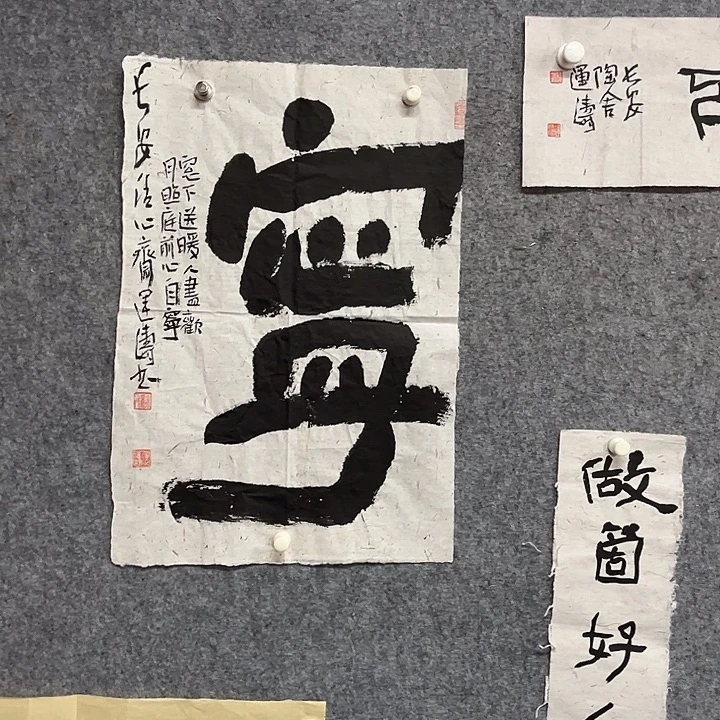 寧
窓下送暖人盡歡
月照庭前心自寧
长安清心齋運濤书
长安
陶舍
運濤
做箇好